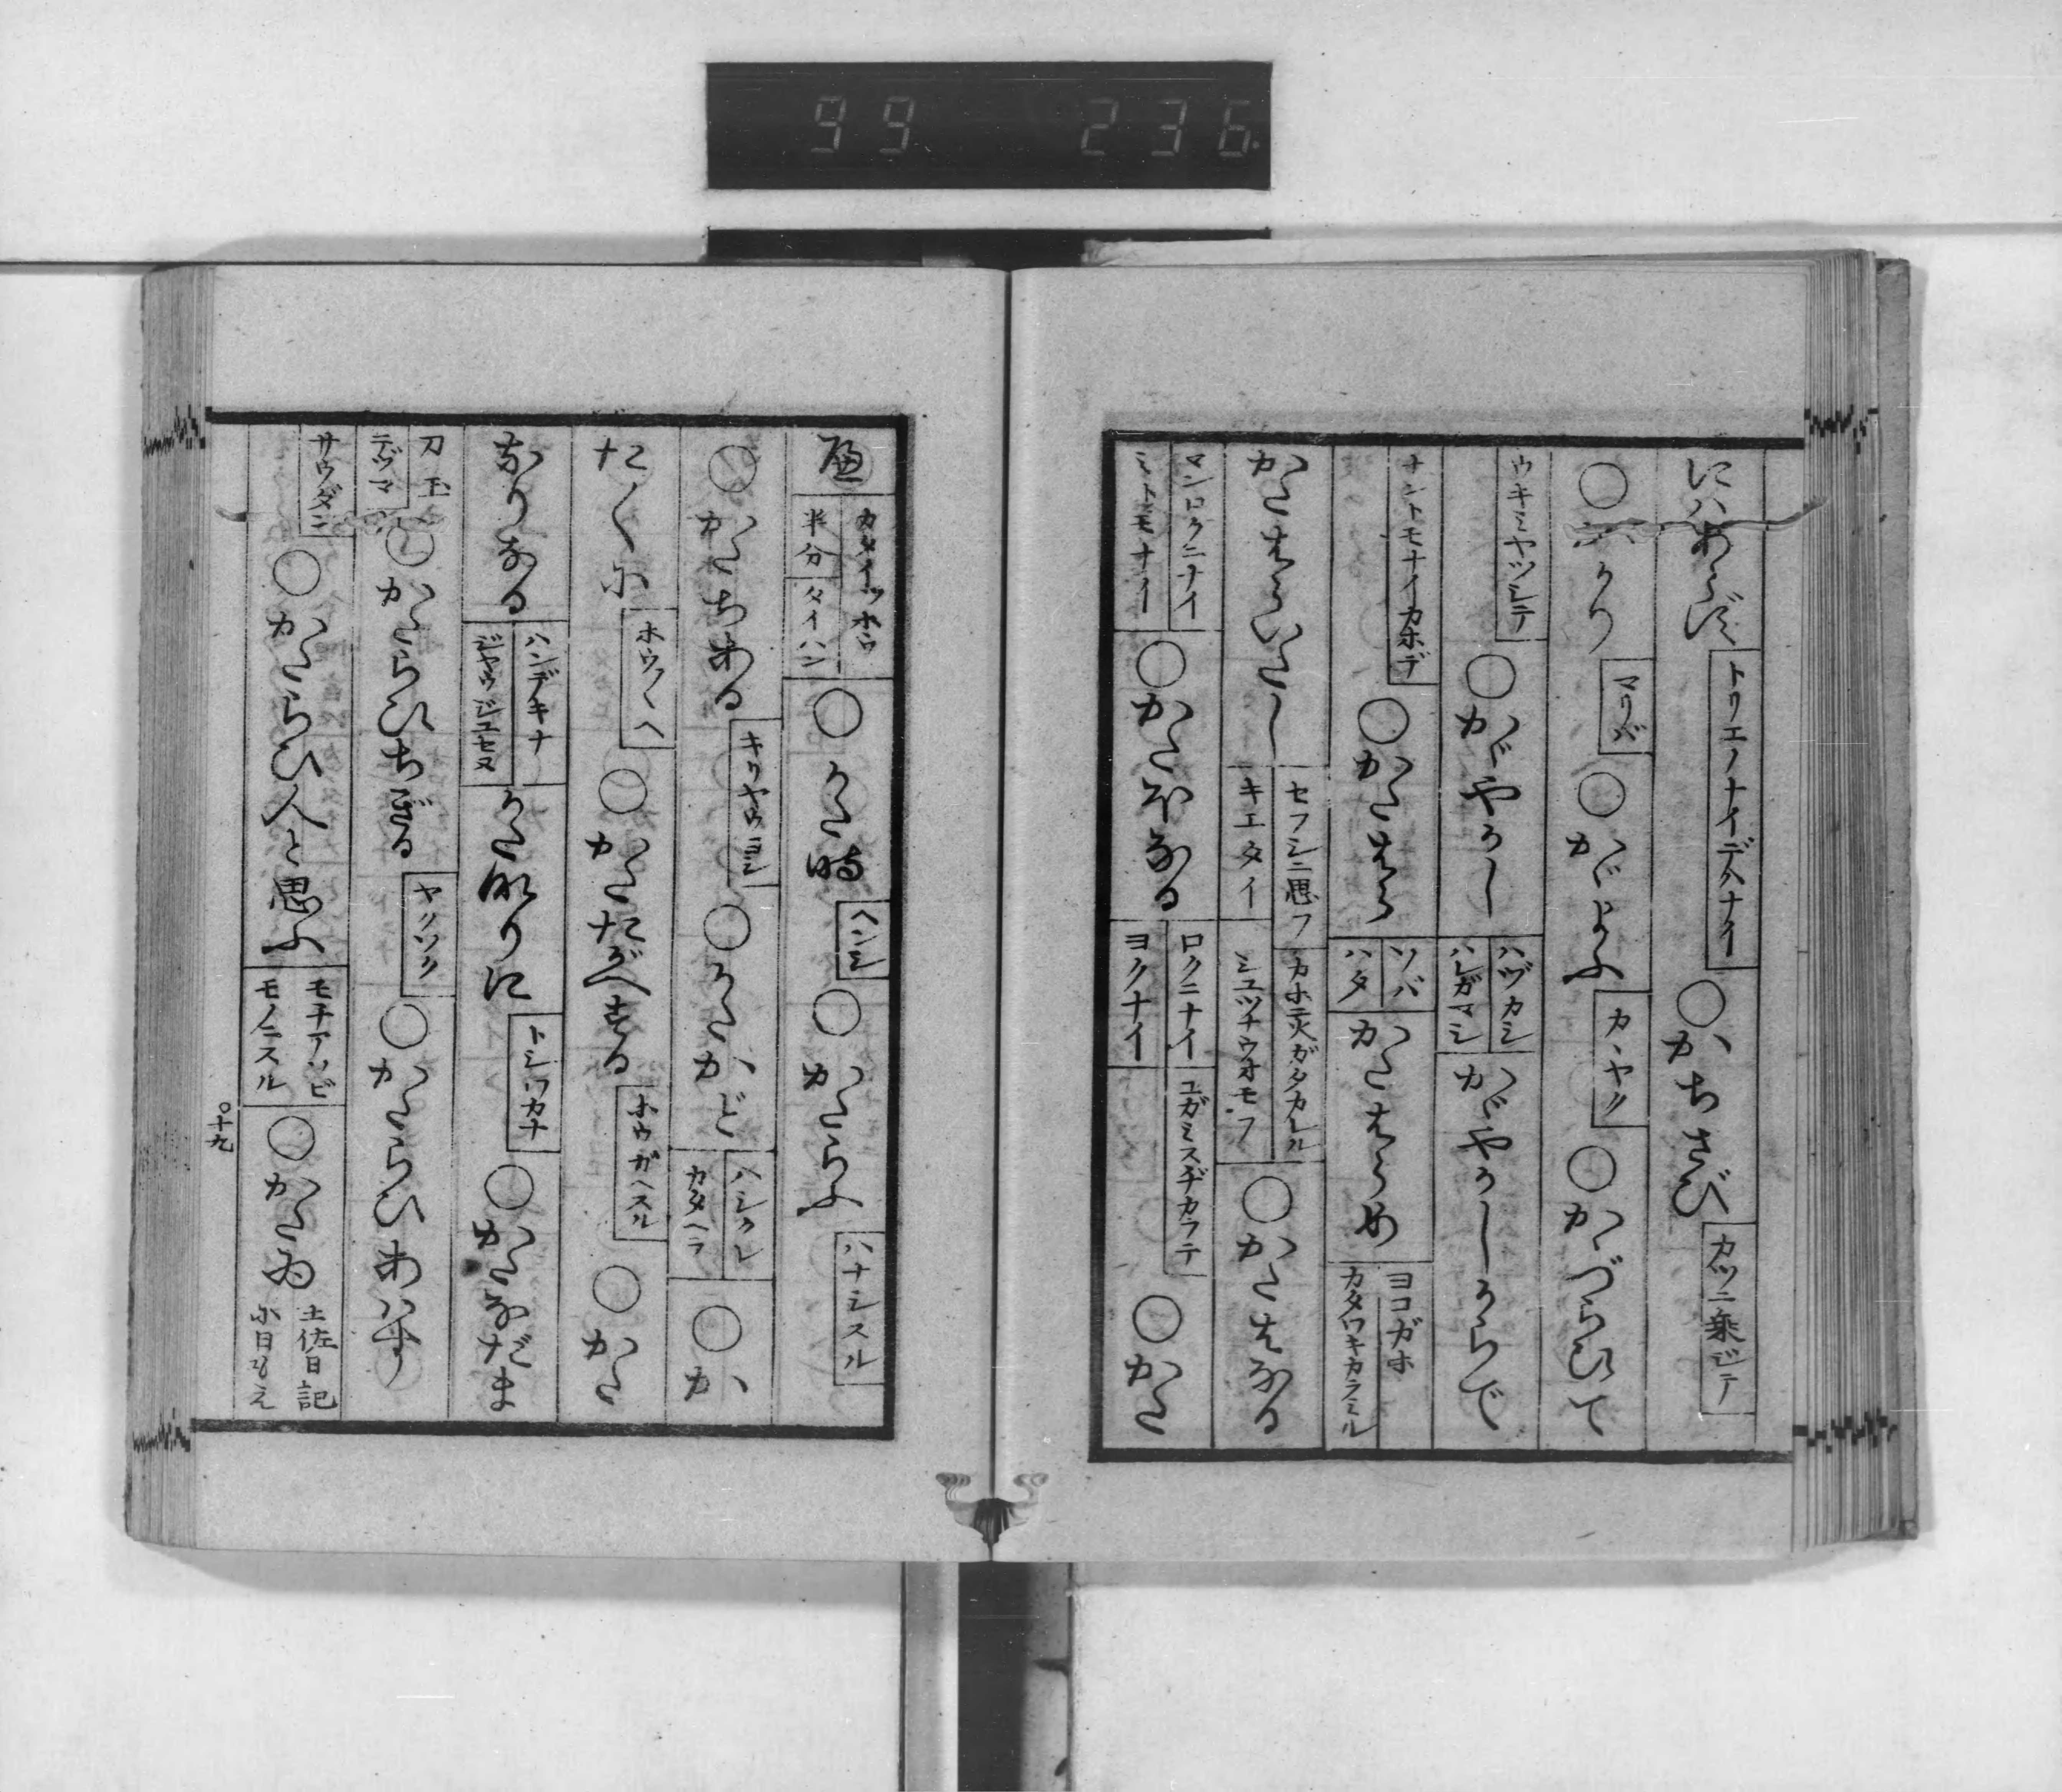 99 236
にハあらず トリエノナイデハナイ ○かちさび カツニ乗ジテ
○かゝり マリバ ○かゞよふ カヽヤク ○かゞづらひて
ウキミヤツシテ ○かゞやかし ハヅカシ ハレガマシ かゞやかしからで
ナントモナイカホデ ○かたはら ソバ ハタ かたはらめ ヨコガホ カタワキカラミル
かたはらいたし セフシニ思フ キエタイ カホニ火ガタカルル シユツナウオモフ ○かたはなる
マンロクニナイ ミトモナイ ○かたほなる ロクニナイ ヨクナイ ユガミスヂカラテ ○かた
カタイツホウ 半分 タイハン ○かた時 ヘンシ ○かたらふ ハナシスル
○かたちある キリヤウヨシ ○かたかど ハシクレ カタヘラ ○か
たくに ホウ〴〵ヘ ○かたたがへする ホウガヘスル ○かた
なりなる ハンデキナ ジヤウジユセヌ かた成りに トシワカナ ○かたなだま
刀玉 テヅマ ○かたらひちぎる ヤクソク ○かたらひあハす
サウダン ○かたらひ人と思ふ モチアソビ モノニスル ○かたゐ 土佐日記 に日もえ
○十九